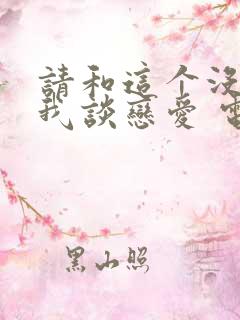 請和這个沒
我談戀愛 電
黑山照